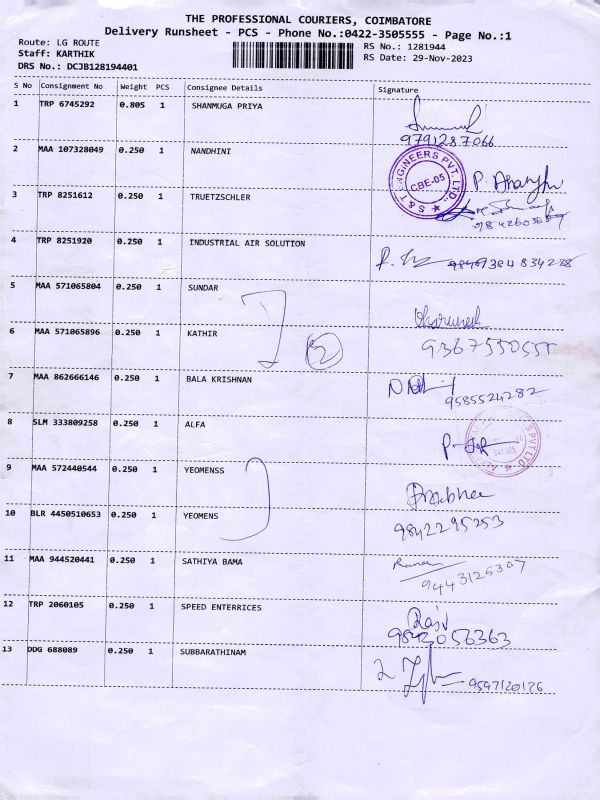 THE PROFESSIONAL COURIERS, COIMBATORE
Delivery Runsheet - PCS - Phone No.:0422-3505555 - Page No.:1
Route: LG ROUTE
Staff: KARTHIK
DRS No.: DCJB128194401
RS No.: 1281944
RS Date: 29-Nov-2023
S No Consignment No Weight PCS Consignee Details Signature
1 TRP 6745292 0.805 1 SHANMUGA PRIYA
9791287066
2 MAA 107328049 0.250 1 NANDHINI
S & T ENGINEERS PVT. LTD. CBE-05
3 TRP 8251612 0.250 1 TRUETZSCHLER
4 TRP 8251920 0.250 1 INDUSTRIAL AIR SOLUTION
5 MAA 571065804 0.250 1 SUNDAR
6 MAA 571065896 0.250 1 KATHIR
2
7 MAA 862666146 0.250 1 BALA KRISHNAN
9585524282
8 SLM 333809258 0.250 1 ALFA
9 MAA 572440544 0.250 1 YEOMENSS
Prabhu
10 BLR 4450510653 0.250 1 YEOMENS
9842295253
11 MAA 944520441 0.250 1 SATHIYA BAMA
9443125307
12 TRP 2060105 0.250 1 SPEED ENTERRICES
9843056363
13 DDG 688089 0.250 1 SUBBARATHINAM
9597120126